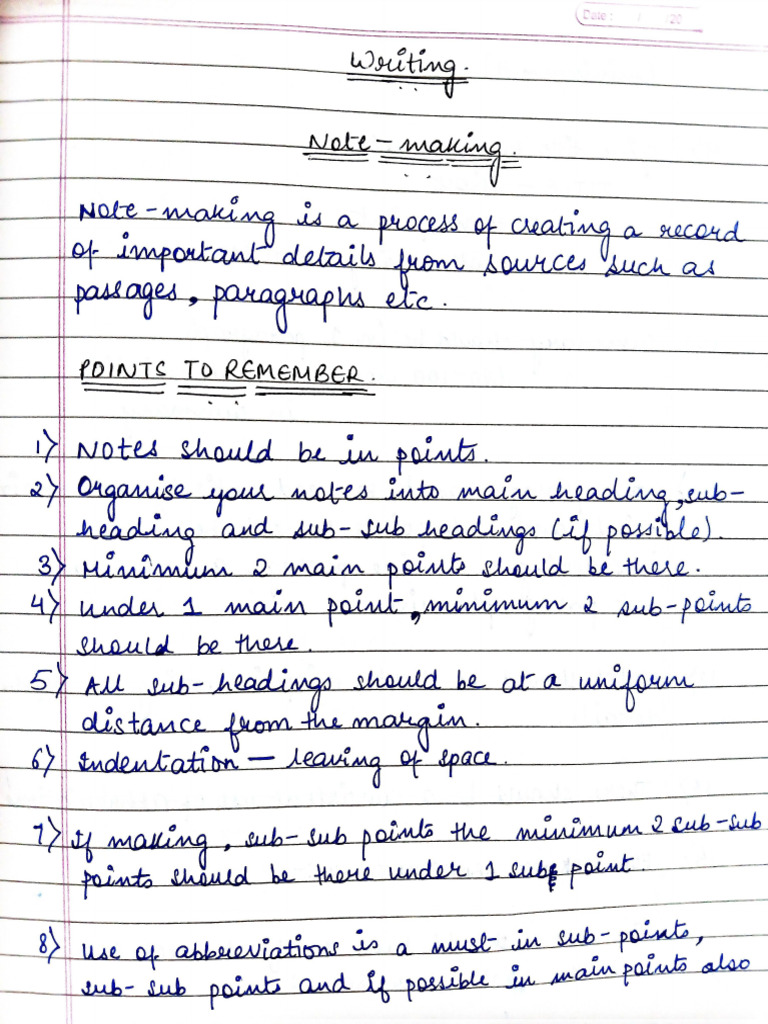 Date: / /20
Writing.
Note-making.
Note-making is a process of creating a record
of important details from sources such as
passages, paragraphs etc.
POINTS TO REMEMBER.
1) Notes should be in points.
2) Organise your notes into main heading, sub-
heading and sub-sub headings (if possible).
3) Minimum 2 main points should be there.
4) Under 1 main point, minimum 2 sub-points
should be there.
5) All sub-headings should be at a uniform
distance from the margin.
6) Indentation — leaving of space.
7) If making, sub-sub points the minimum 2 sub-sub
points should be there under 1 sub point.
8) Use of abbreviations is a must in sub-points,
sub-sub points and if possible in main points also